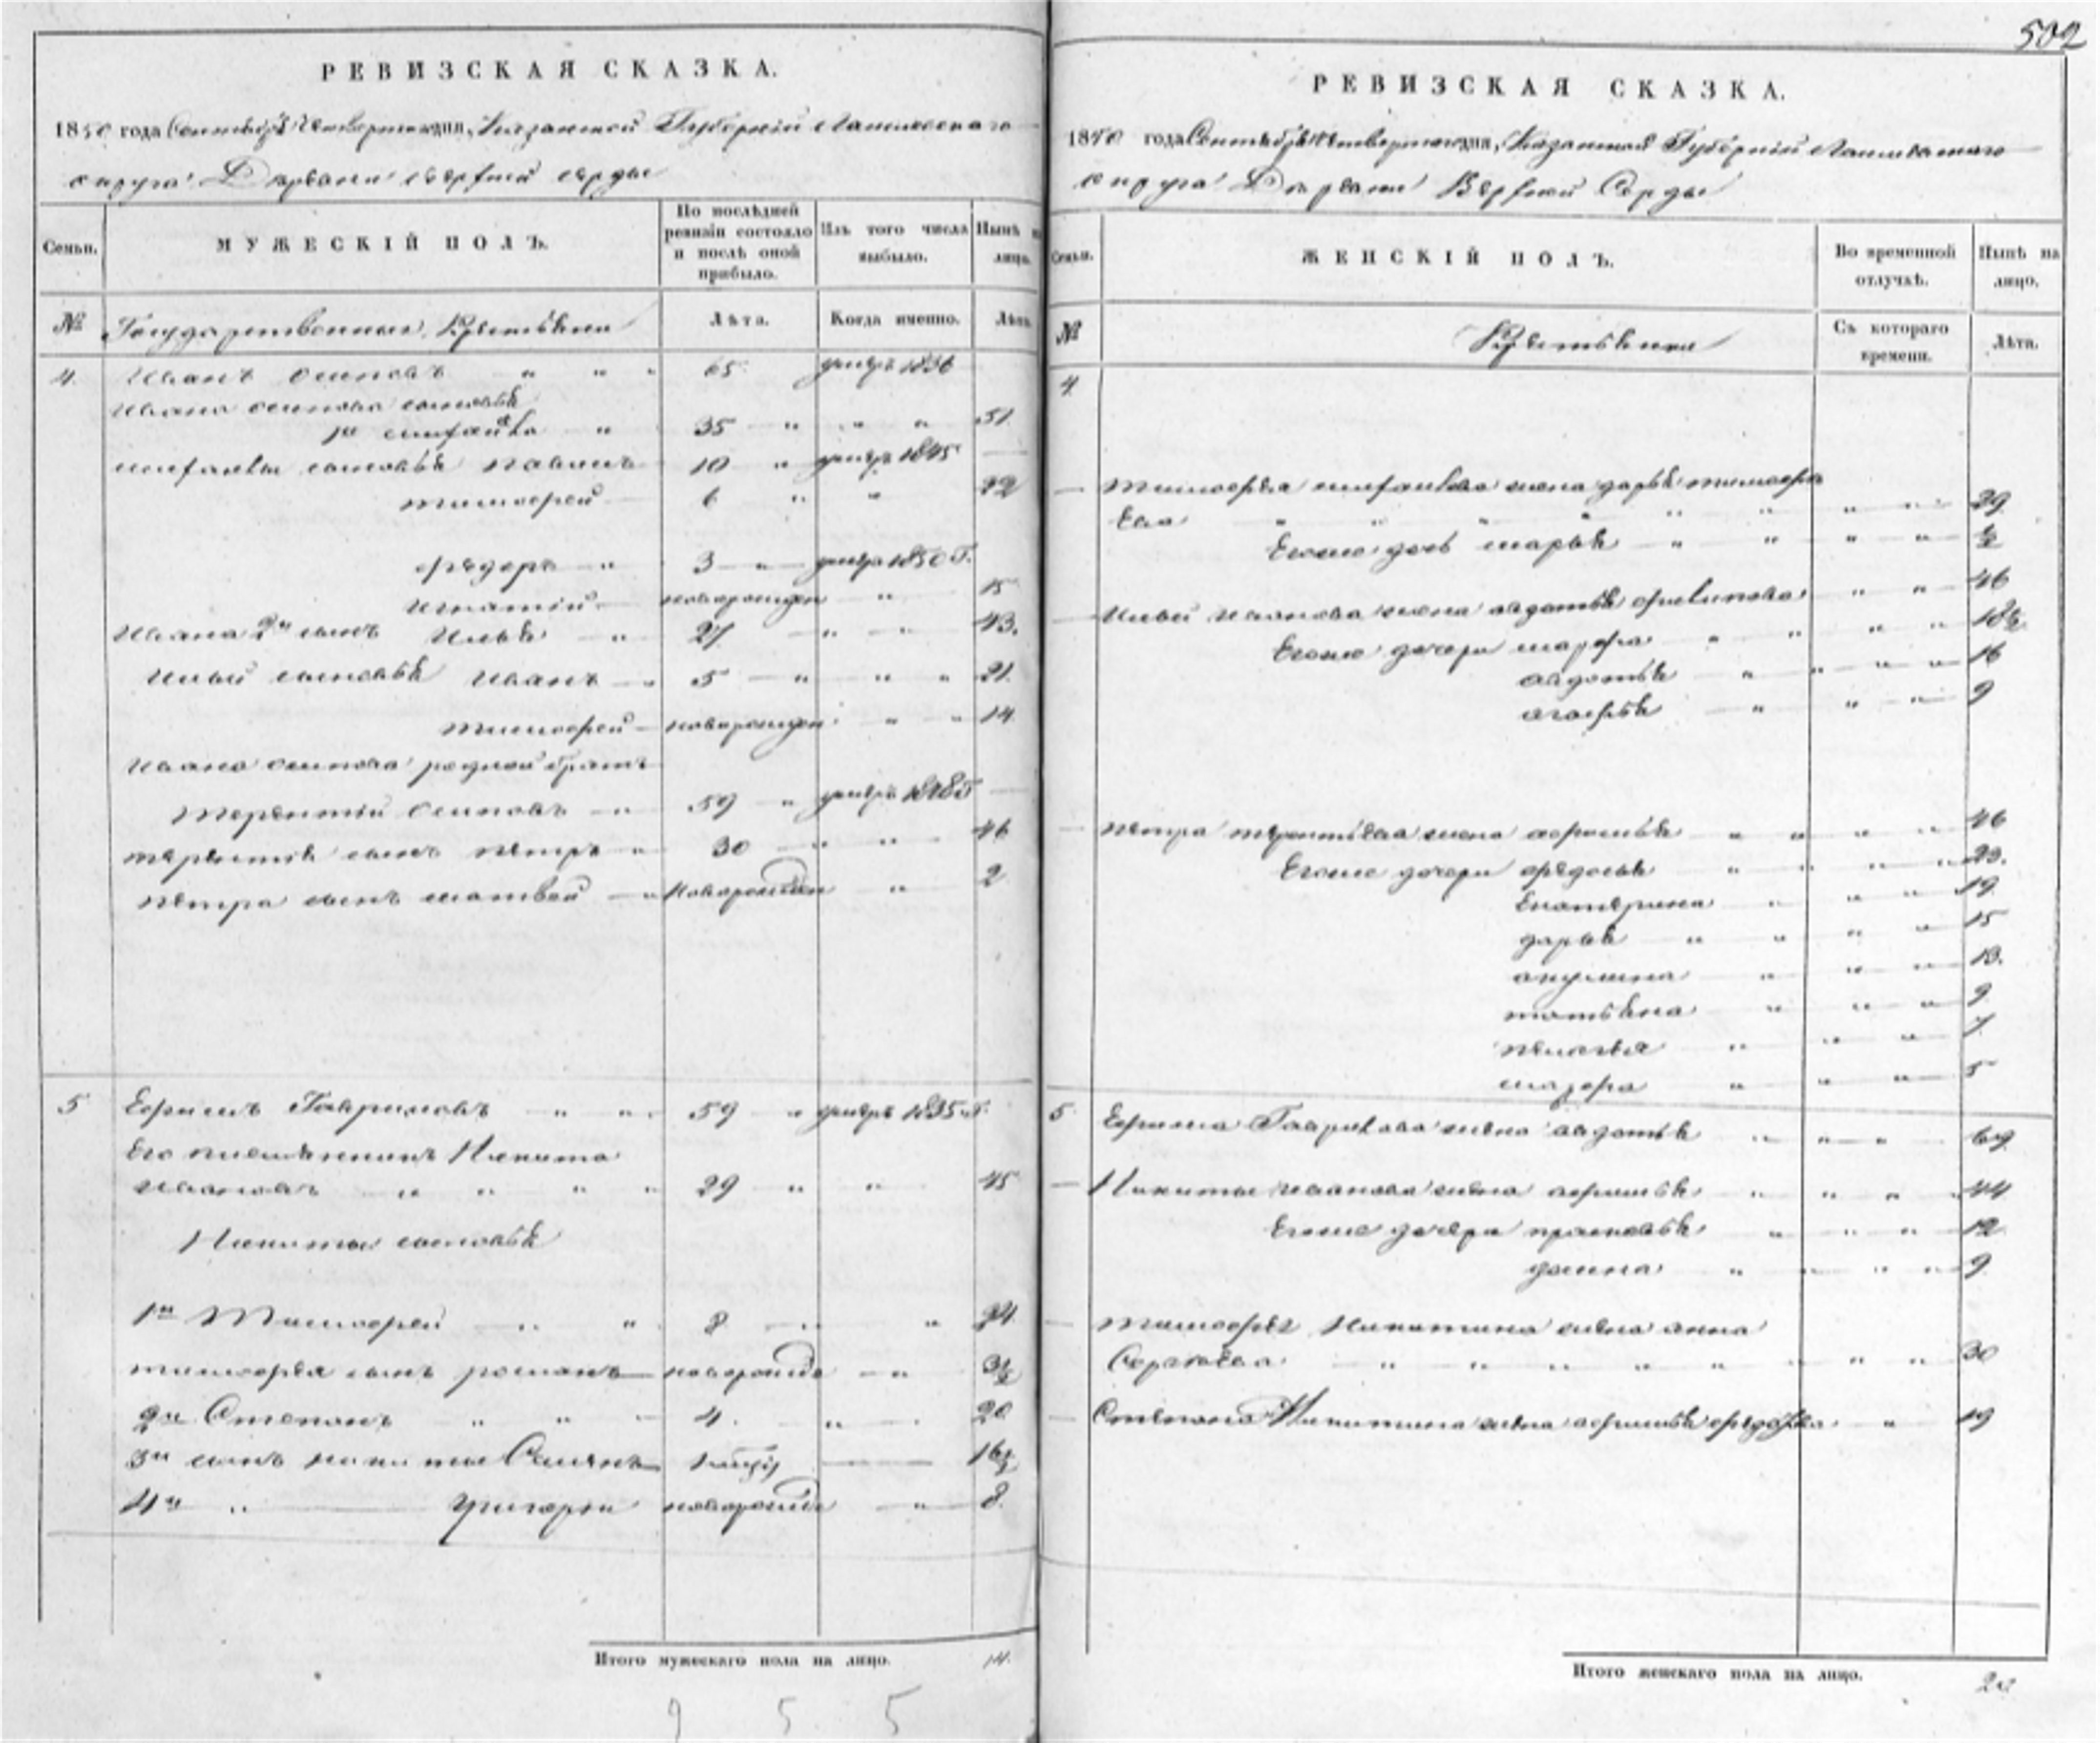 РЕВИЗСКАЯ СКАЗКА.
1850 года Сентября четвертого дня, Казанской Губернии Лаишевского
округа Деревни Верхней Серды
Семьи.
МУЖЕСКІЙ ПОЛЪ.
По послѣдней ревизіи состояло и послѣ оной прибыло.
Изъ того числа выбыло.
Нынѣ на лицо.
№
Государственныя Крестьяне
Лѣта.
Когда именно.
Лѣта.
4. Иванъ Осиповъ " " " 65 умеръ 1836
Ивана Осипова сыновья
1й " 35 " " " 51.
сыновья 10 " умеръ 1845
тимофей 6 " " 22
федоръ " 3 " умеръ 1850 г.
игнатій новорожден " 15
Ивана 2й сынъ Илья " 27 " " 43.
Ильи сыновья Иванъ " 5 " " " 21.
тимофей новорожден " " 14
Ивана Осипова родной братъ
терентій Осиповъ " 59 " умеръ
терентья сынъ петръ " 30 " " 46
петра сынъ матвей " новорожден " 2
5 Ефимъ Гавриловъ " " " 59 " умеръ 1835 г.
Его племянникъ Никита
Ивановъ " " " " 29 " " 45
Никиты сыновья
1й Тимофей " " 8 " " 24
тимофея сынъ романъ новорожде " 3½
2й Степанъ " " " 4 " 20
3й сынъ никиты Семенъ 16½
4й " Григорій новорожде " 8
Итого мужескаго пола на лицо. 14.
9 5 5
502
РЕВИЗСКАЯ СКАЗКА.
1850 года Сентября четвертого дня, Казанской Губерніи Лаишевскаго
округа Деревни Верхней Серды
Семьи.
ЖЕНСКІЙ ПОЛЪ.
Во временной отлучкѣ.
Нынѣ на лицо.
№
Крестьянки
Съ котораго времени.
Лѣта.
4
Тимофея жена дарья тимофе
Ева " " " " " " " " 29
Егоже дочь марья " " " " ½
Ильи иванова жена авдотья филипова " " 46
Егоже дочери марфа " " " " 18½
авдотья " " " " 16
агафья " " " 9
петра терентьева жена афимья " " " " 46
Егоже дочери федосья " " " " 23.
Екатерина " " " 19
дарья " " " " 15
акулина " " " 13.
татьяна " " " 9
пелагея " " " 7
" " " 5
5. Ефима Гаврилова жена авдотья " " " 69
Никиты иванова жена афимья " " " " 44
Егоже дочери прасковья " " " 12
домна " " " " 9
тимофея Никитина жена анна
Сергеева " " " " " " " " 30
Степана Никитина жена афимья федорова " 19
Итого женскаго пола на лицо. 20